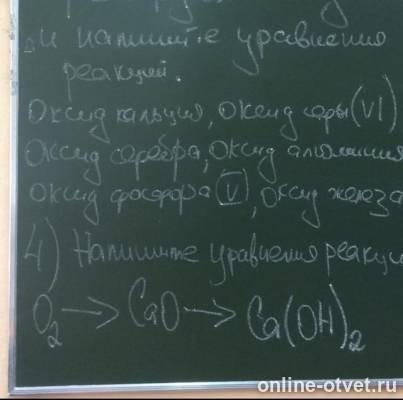 и напишите уравнения
реакций.
Оксид кальция, оксид серы (VI)
Оксид серебра, оксид алюминия
Оксид фосфора (V), оксид железа
4) Напишите уравнения реакци
O₂ → CaO → Ca(OH)₂
online-otvet.ru